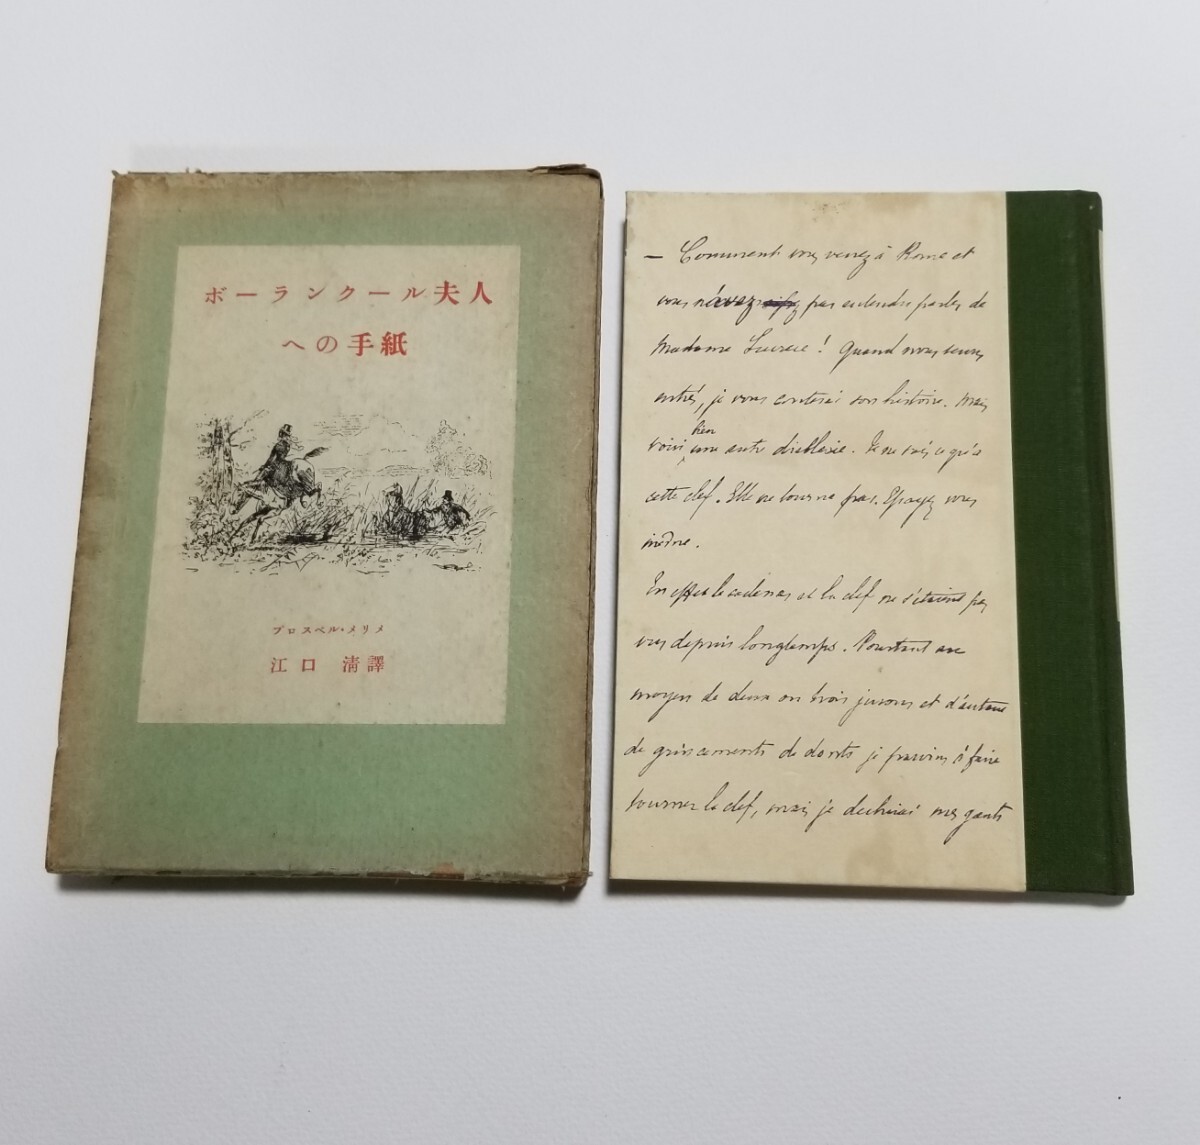 ボーランクール夫人
への手紙
プロスペル・メリメ
江口 清譯
— Comment vous venez à Rome et
vous n'avez pas entendu parler de
Madame Lucrèce ! Quand nous serons
entrés, je vous conterai son histoire. Mais
bien
voici une autre diablerie. Je ne sais ce qu'a
cette clef. Elle ne tourne pas. Essayez vous
même.
En effet le cadenas et la clef ne s'étaient pas
vus depuis longtemps. Pourtant au
moyen de deux ou trois jurons et d'autant
de grincements de dents je parvins à faire
tourner la clef, mais je déchirai mes gants